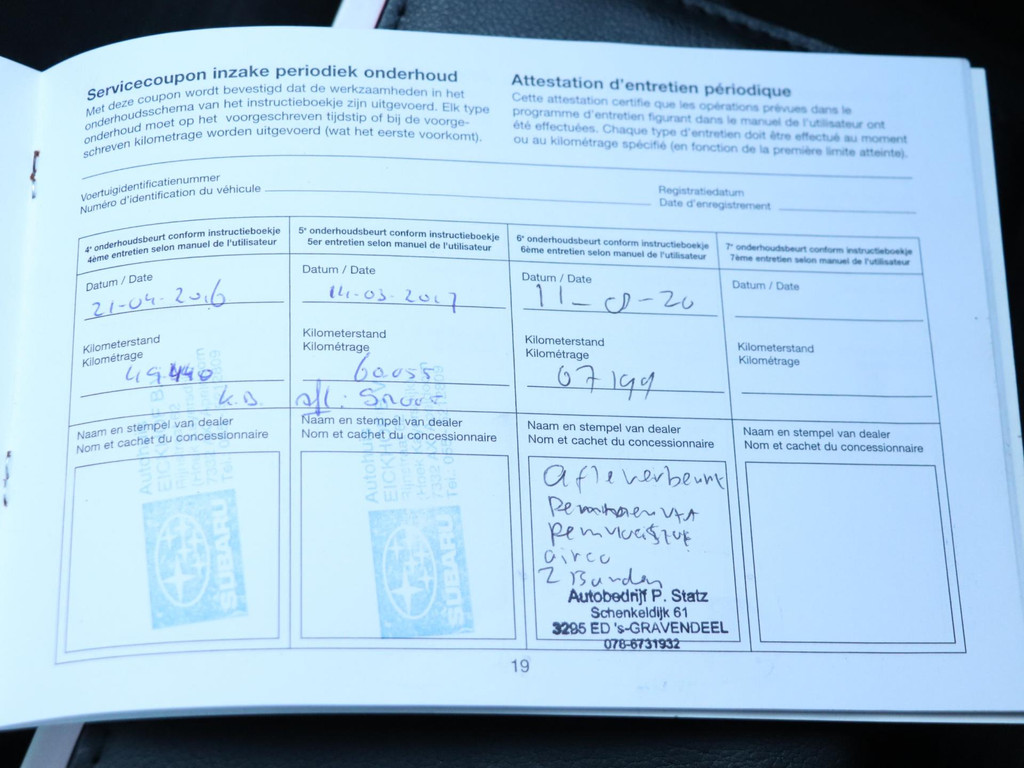 Servicecoupon inzake periodiek onderhoud
Met deze coupon wordt bevestigd dat de werkzaamheden in het
onderhoudsschema van het instructieboekje zijn uitgevoerd. Elk type
onderhoud moet op het voorgeschreven tijdstip of bij de voorge-
schreven kilometrage worden uitgevoerd (wat het eerste voorkomt).
Attestation d'entretien périodique
Cette attestation certifie que les opérations prévues dans le
programme d'entretien figurant dans le manuel de l'utilisateur ont
été effectuées. Chaque type d'entretien doit être effectué au moment
ou au kilométrage spécifié (en fonction de la première limite atteinte).
Voertuigidentificatienummer
Numéro d'identification du véhicule
Registratiedatum
Date d'enregistrement
4e onderhoudsbeurt conform instructieboekje
4ème entretien selon manuel de l'utilisateur
Datum / Date
21-04-2016
Kilometerstand
Kilométrage
49440
K.D.
Naam en stempel van dealer
Nom et cachet du concessionnaire
SUBARU
5e onderhoudsbeurt conform instructieboekje
5er entretien selon manuel de l'utilisateur
Datum / Date
14-03-2017
Kilometerstand
Kilométrage
60055
Naam en stempel van dealer
Nom et cachet du concessionnaire
SUBARU
6e onderhoudsbeurt conform instructieboekje
6ème entretien selon manuel de l'utilisateur
Datum / Date
11-8-20
Kilometerstand
Kilométrage
67199
Naam en stempel van dealer
Nom et cachet du concessionnaire
Afleverbeurt
Remvloeistof
airco
2 Banden
Autobedrijf P. Statz
Schenkeldijk 61
3295 ED 's-GRAVENDEEL
078-6731932
7e onderhoudsbeurt conform instructieboekje
7ème entretien selon manuel de l'utilisateur
Datum / Date
Kilometerstand
Kilométrage
Naam en stempel van dealer
Nom et cachet du concessionnaire
19